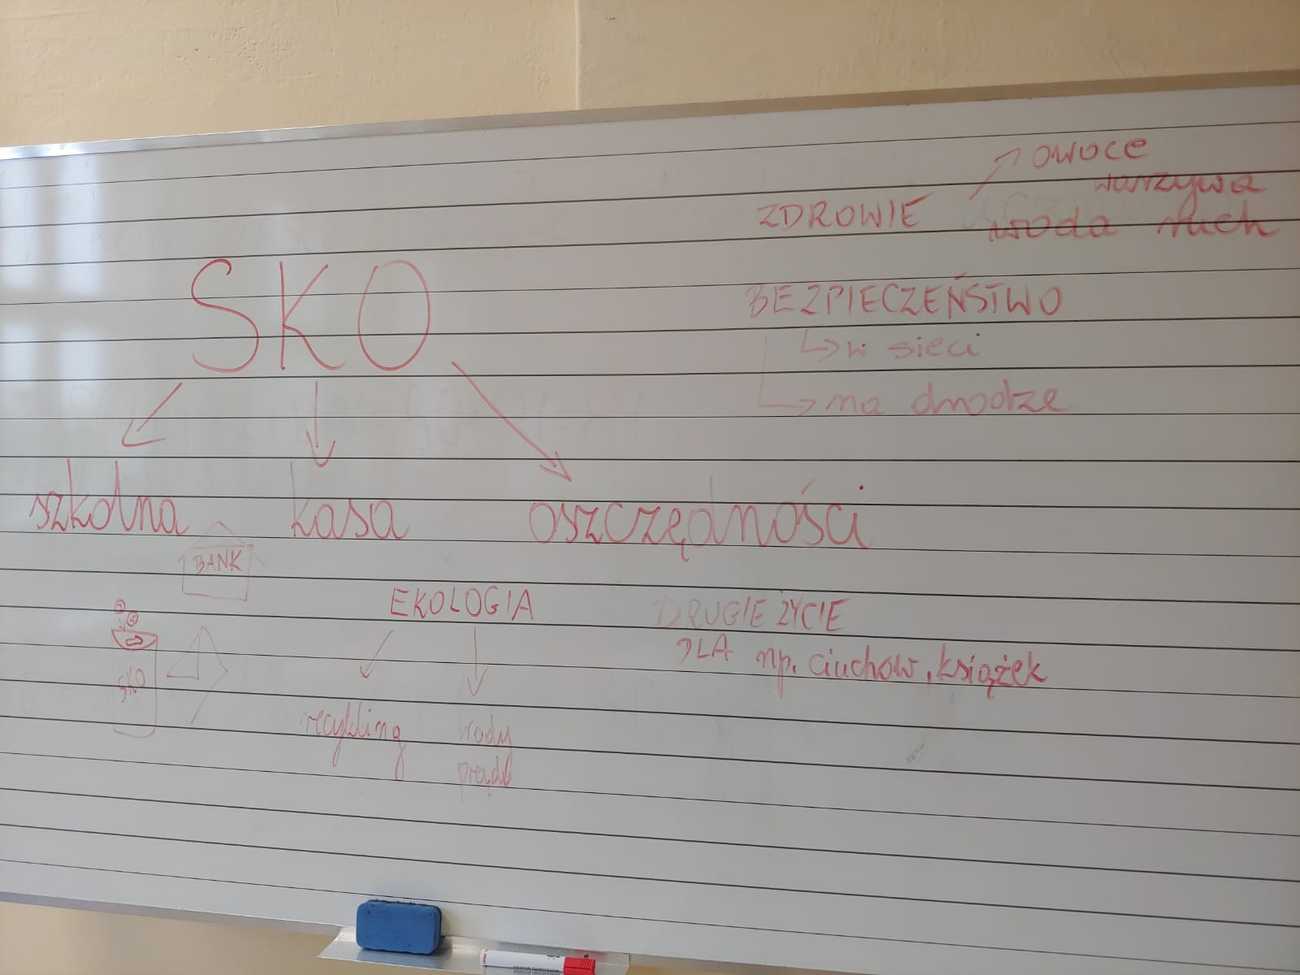 SKO
szkolna kasa oszczędności
BANK
SKO
EKOLOGIA
recykling
wody
prądu
ZDROWIE
owoce
warzywa
woda ruch
BEZPIECZEŃSTWO
w sieci
na drodze
DRUGIE ŻYCIE
DLA np. ciuchów, książek